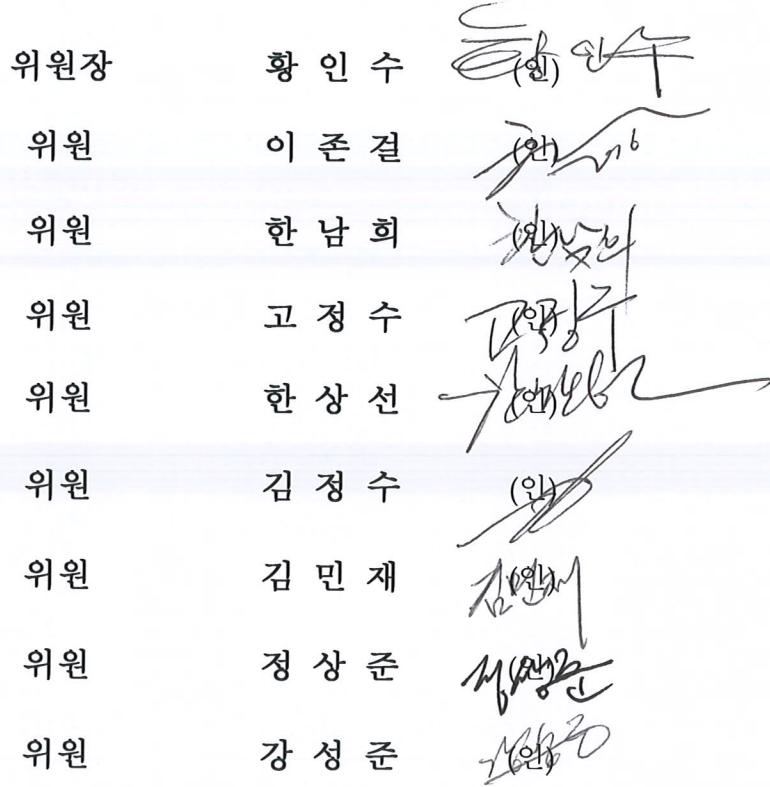 위원장 황 인 수 (인)
위원 이 존 걸 (인)
위원 한 남 희 (인)
위원 고 정 수 (인)
위원 한 상 선 (인)
위원 김 정 수 (인)
위원 김 민 재 (인)
위원 정 상 준 (인)
위원 강 성 준 (인)